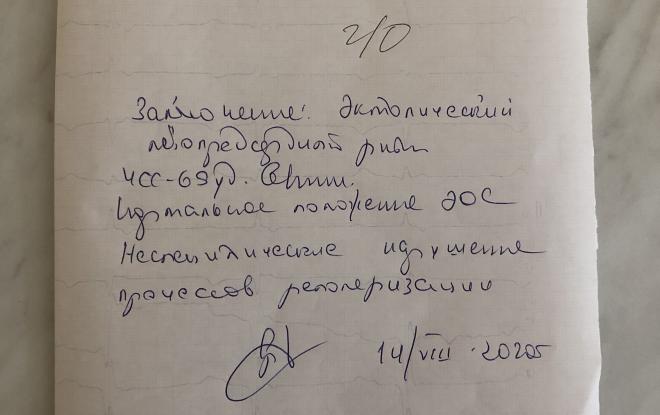 г/о
Заключение: Эктопический
левопредсердный ритм
ЧСС-69уд. в мин.
Нормальное положение ЭОС
Неспецифические нарушение
процессов реполяризации
14/VIII·2020г